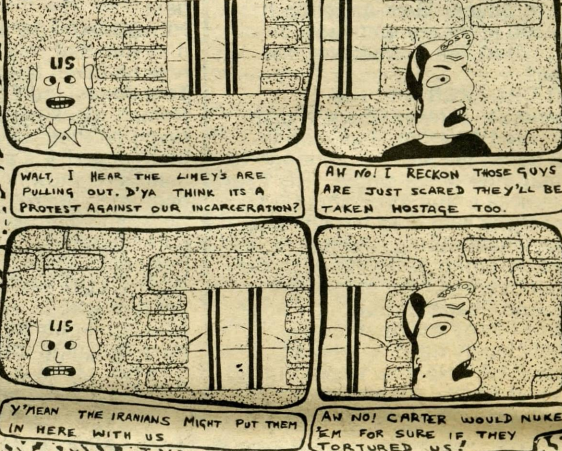 US
WALT, I HEAR THE LIMEY'S ARE
PULLING OUT. D'YA THINK ITS A
PROTEST AGAINST OUR INCARCERATION?
AH NO! I RECKON THOSE GUYS
ARE JUST SCARED THEY'LL BE
TAKEN HOSTAGE TOO.
US
Y'MEAN THE IRANIANS MIGHT PUT THEM
IN HERE WITH US
AH NO! CARTER WOULD NUKE
'EM FOR SURE IF THEY
TORTURED US!